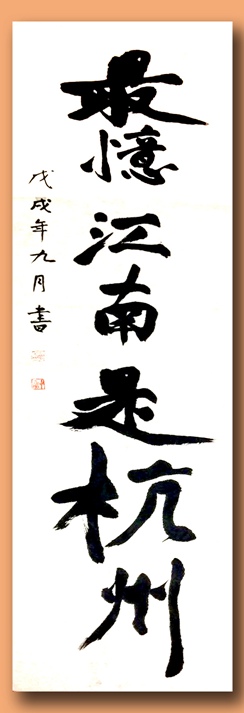 最憶江南是杭州
戊戌年九月書